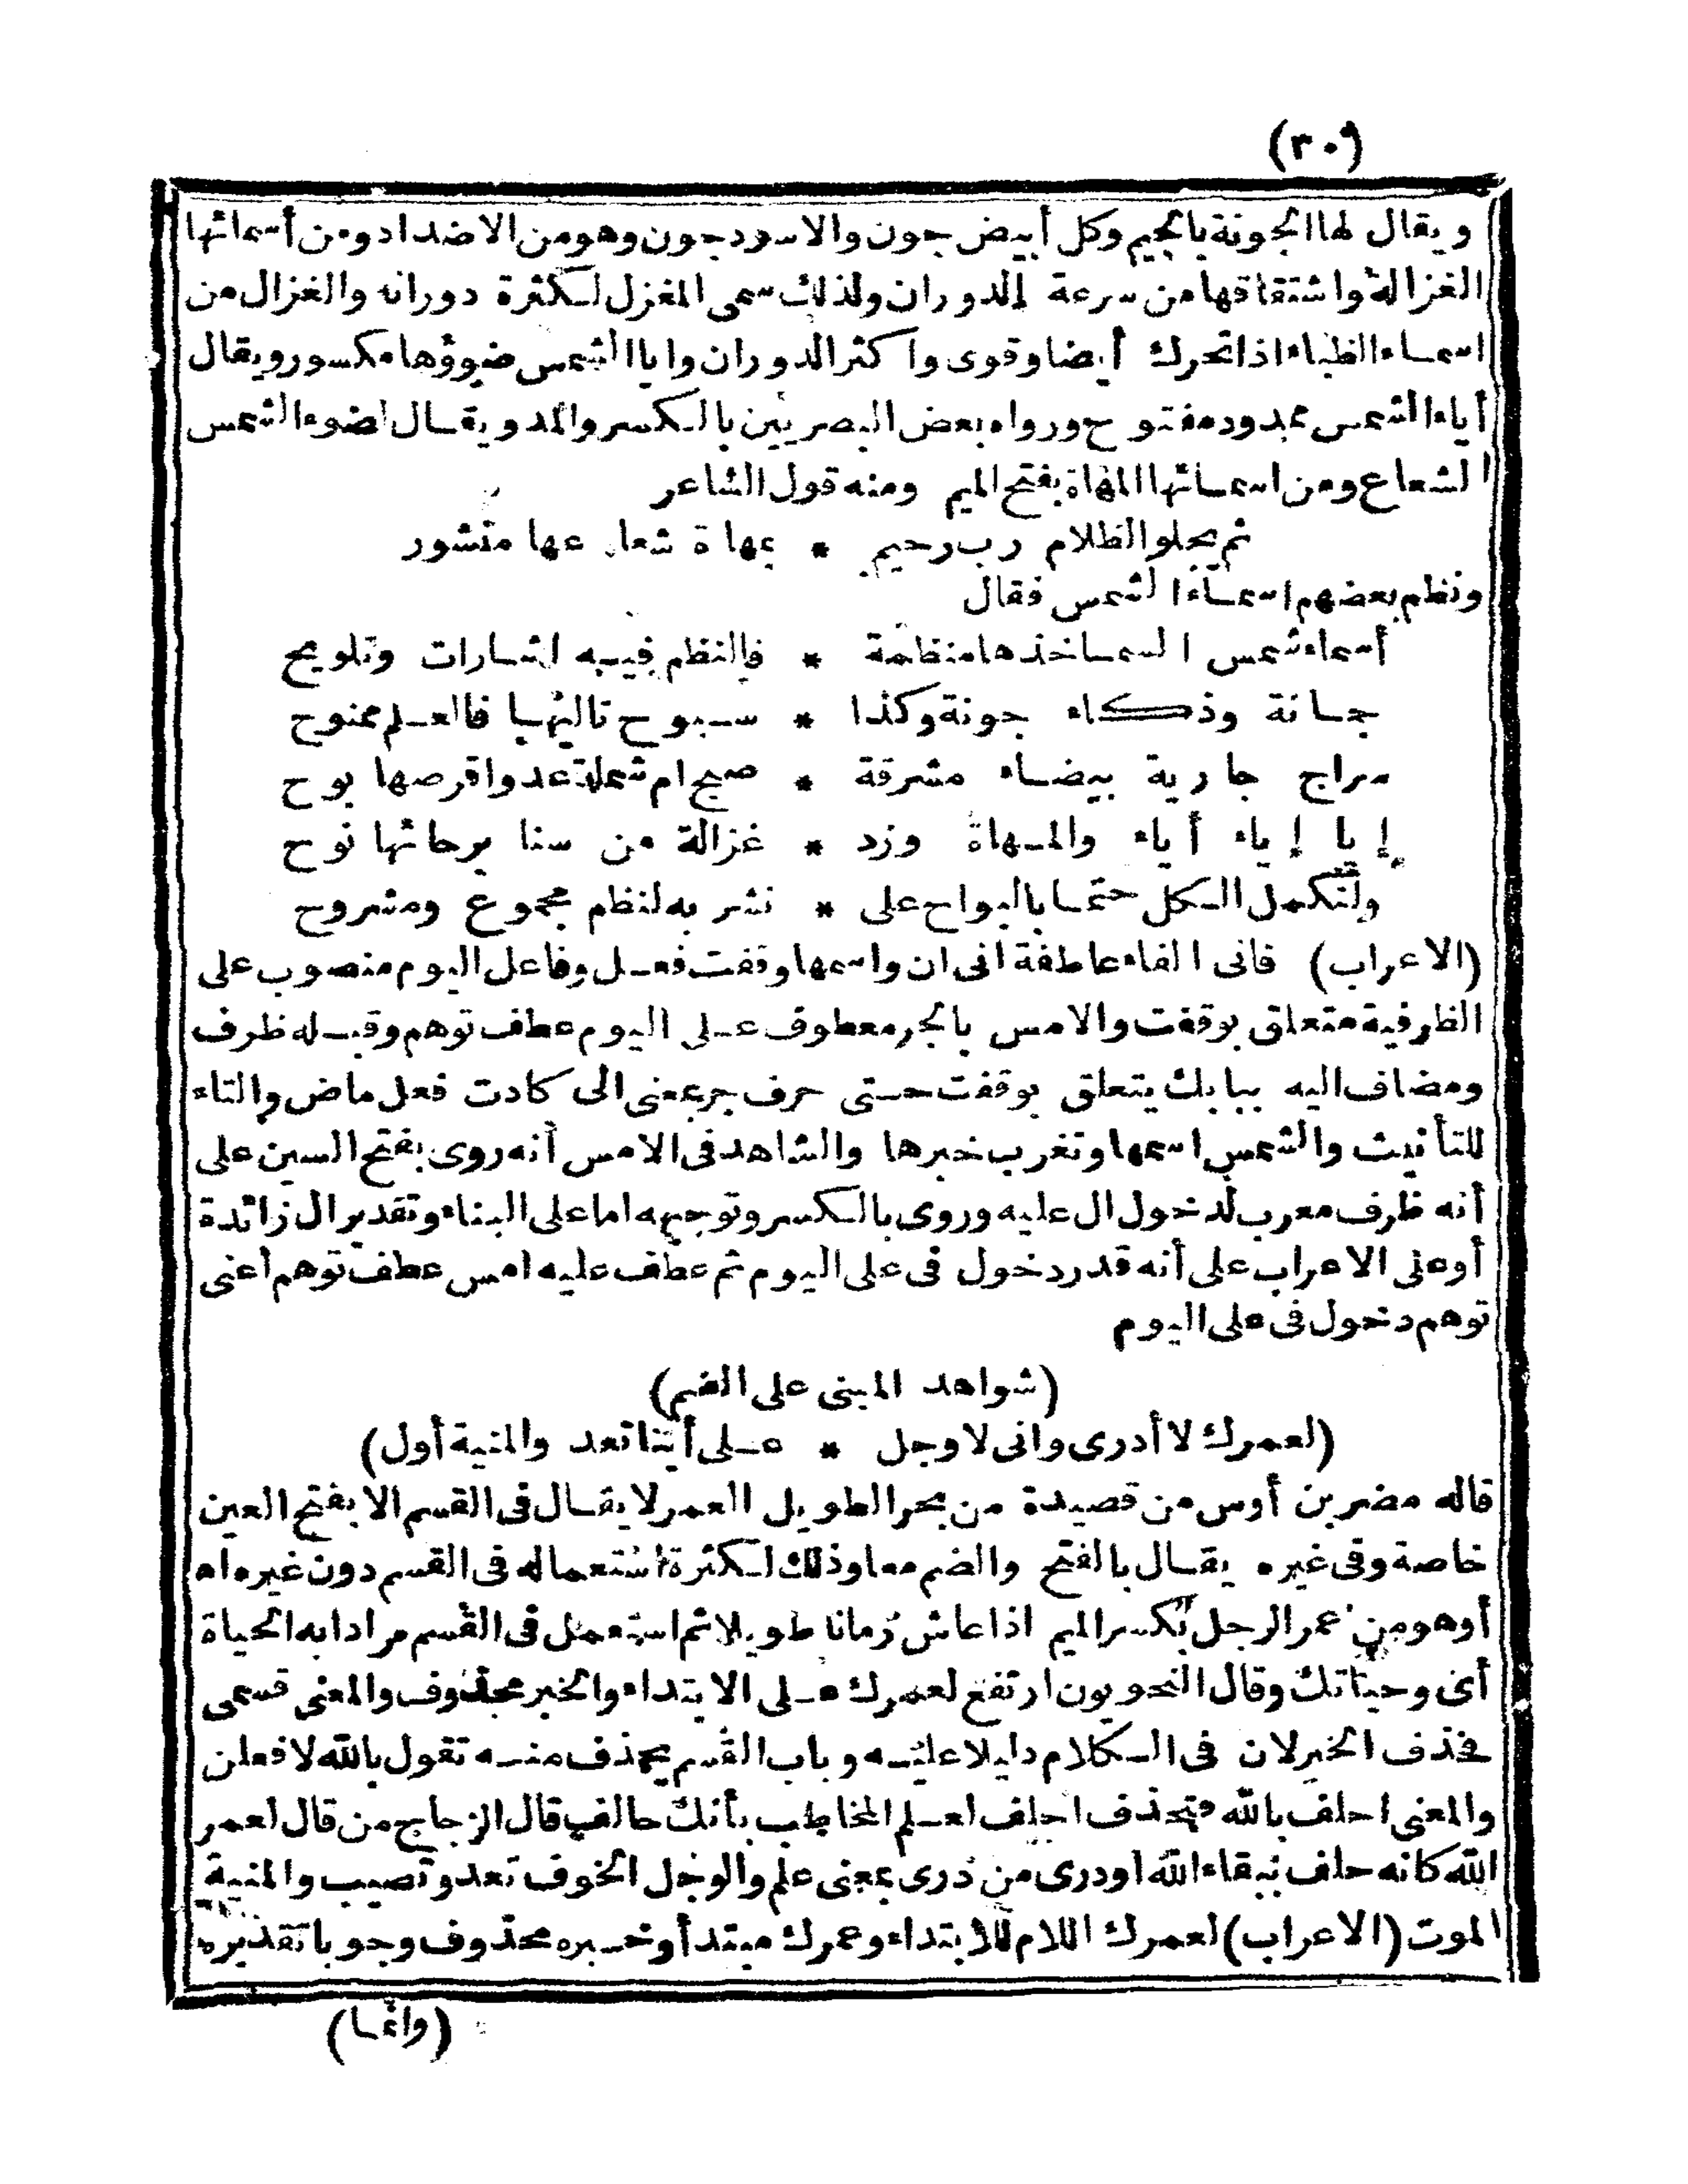 (٣٠)
ويقال لها الجونة بالجيم وكل أبيض جون والاسود جون وهو من الاضداد ومن أسمائها
الغزالة واشتقاقها من سرعة الدوران ولذلك سمى المغزل لكثرة دورانه والغزال من
اسماء الظباء اذا تحرك أيضا وقوى واكثر الدوران وايا الشمس ضوؤها مكسور ويقال
أياء الشمس ممدود مفتوح ورواه بعض البصريين بالكسر والمد ويقال لضوء الشمس
الشعاع ومن اسمائها المهاة بفتح الميم ومنه قول الشاعر
ثم يجلو الظلام رب رحيم * بمهاة شعاعها منشور
ونظم بعضهم اسماء الشمس فقال
أسماء شمس السما خذها منظمة * فالنظم فيه اشارات وتلويح
جانة وذكاء جونة وكذا * سبوح تاليها فالعلم ممنوح
سراج جارية بيضاء مشرقة * صبح ام شملة عدوا قرصها بوح
إيا إياء أياء والمهاة وزد * غزالة من سنا برحائها نوح
ولتكمل الكل حتما بالبواح على * نشر به لنظم مجموع ومشروح
(الاعراب) فانى الفاء عاطفة انى ان واسمها وقفت فعل وفاعل اليوم منصوب على
الظرفية متعلق بوقفت والامس بالجر معطوف على اليوم عطف توهم وقبله ظرف
ومضاف اليه ببابك يتعلق بوقفت حتى حرف جر بمعنى الى كادت فعل ماض والتاء
للتأنيث والشمس اسمها وتغرب خبرها والشاهد فى الامس أنه روى بفتح السين على
أنه ظرف معرب لدخول ال عليه وروى بالكسر وتوجيهه اما على البناء وتقدير ال زائدة
أو على الاعراب على أنه قدر دخول فى على اليوم ثم عطف عليه امس عطف توهم أعنى
توهم دخول فى على اليوم
(شواهد المبنى على الضم)
(لعمرك لا أدرى وانى لاوجل * على أيتنا تعد والمنية أول)
قاله مضر بن أوس من قصيدة من بحر الطويل العمر لا يقال فى القسم الا بفتح العين
خاصة وفى غيره يقال بالفتح والضم معا وذلك لكثرة استعماله فى القسم دون غيره اه
أو هو من عمر الرجل بكسر الميم اذا عاش زمانا طويلا ثم استعمل فى القسم مرادا به الحياة
أى وحياتك وقال النحويون ارتفع لعمرك على الابتداء والخبر محذوف والمعنى قسمى
فحذف الخبر لان فى الكلام دليلا عليه وباب القسم يحذف منه تقول بالله لافعلن
والمعنى احلف بالله فتحذف احلف لعلم المخاطب بأنك حالف قال الزجاج من قال لعمر
الله كانه حلف ببقاء الله او درى من درى بمعنى علم والوجل الخوف تعدو تصيب والمنية
الموت (الاعراب) لعمرك اللام للابتداء وعمرك مبتدأ وخبره محذوف وجوبا تقديره
(وانما)